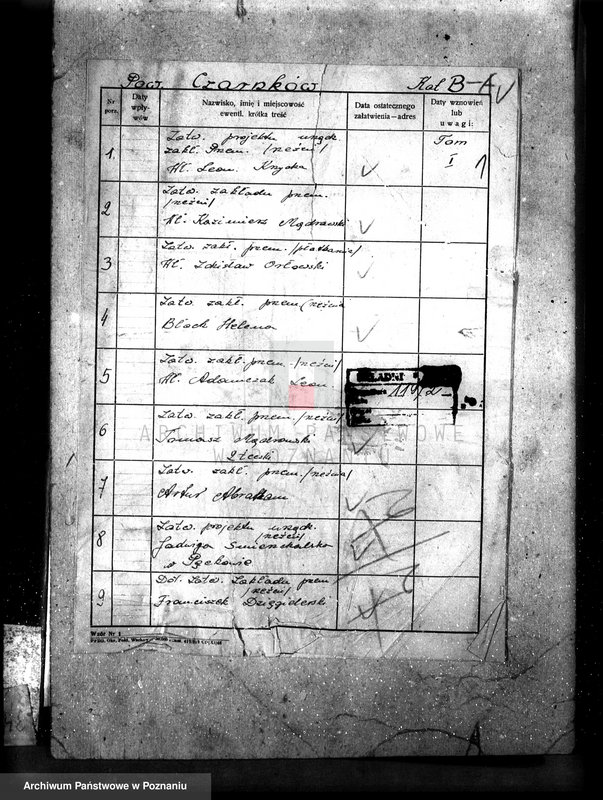 Pow. Czarnków Kat B-A
Nr porz. Daty wpływów Nazwisko, imię i miejscowość ewentl. krótka treść Data ostatecznego załatwienia—adres Daty wznowień lub uwagi:
1. Zatw. projektu urządz.
zakł. przem. /rzeźni/
Wł. Leon Tom I
2 Zatw. zakładu przem.
/rzeźni/
Wł. Kazimierz Mądrawski
3 Zatw. zakł. przem.
Wł. Zdzisław Orłowski
4 Zatw. zakł. przem. /rzeźnia
Block Helena
5 Zatw. zakł. przem. /rzeźni/
Wł. Adamczak Leon
6 Zatw. zakł. przem. /rzeźni/
Tomasz Mądrawski
7 Zatw. zakł. przem. /rzeźnia/
Artur Abraham
8 Zatw. projektu urządz.
/rzeźni/
Jadwiga
9 Dot. Zatw. Zakładu przem.
/rzeźni/
Franciszek
Wzór Nr 1
ARCHIWUM PAŃSTWOWE
W POZNANIU
Archiwum Państwowe w Poznaniu